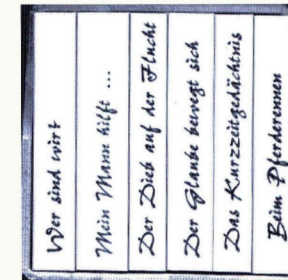 Wer sind wir?
Mein Mann hilft ...
Der Dieb auf der Flucht
Der Glaube bewegt sich
Das Kurzzeitgedächtnis
Beim Pferderennen